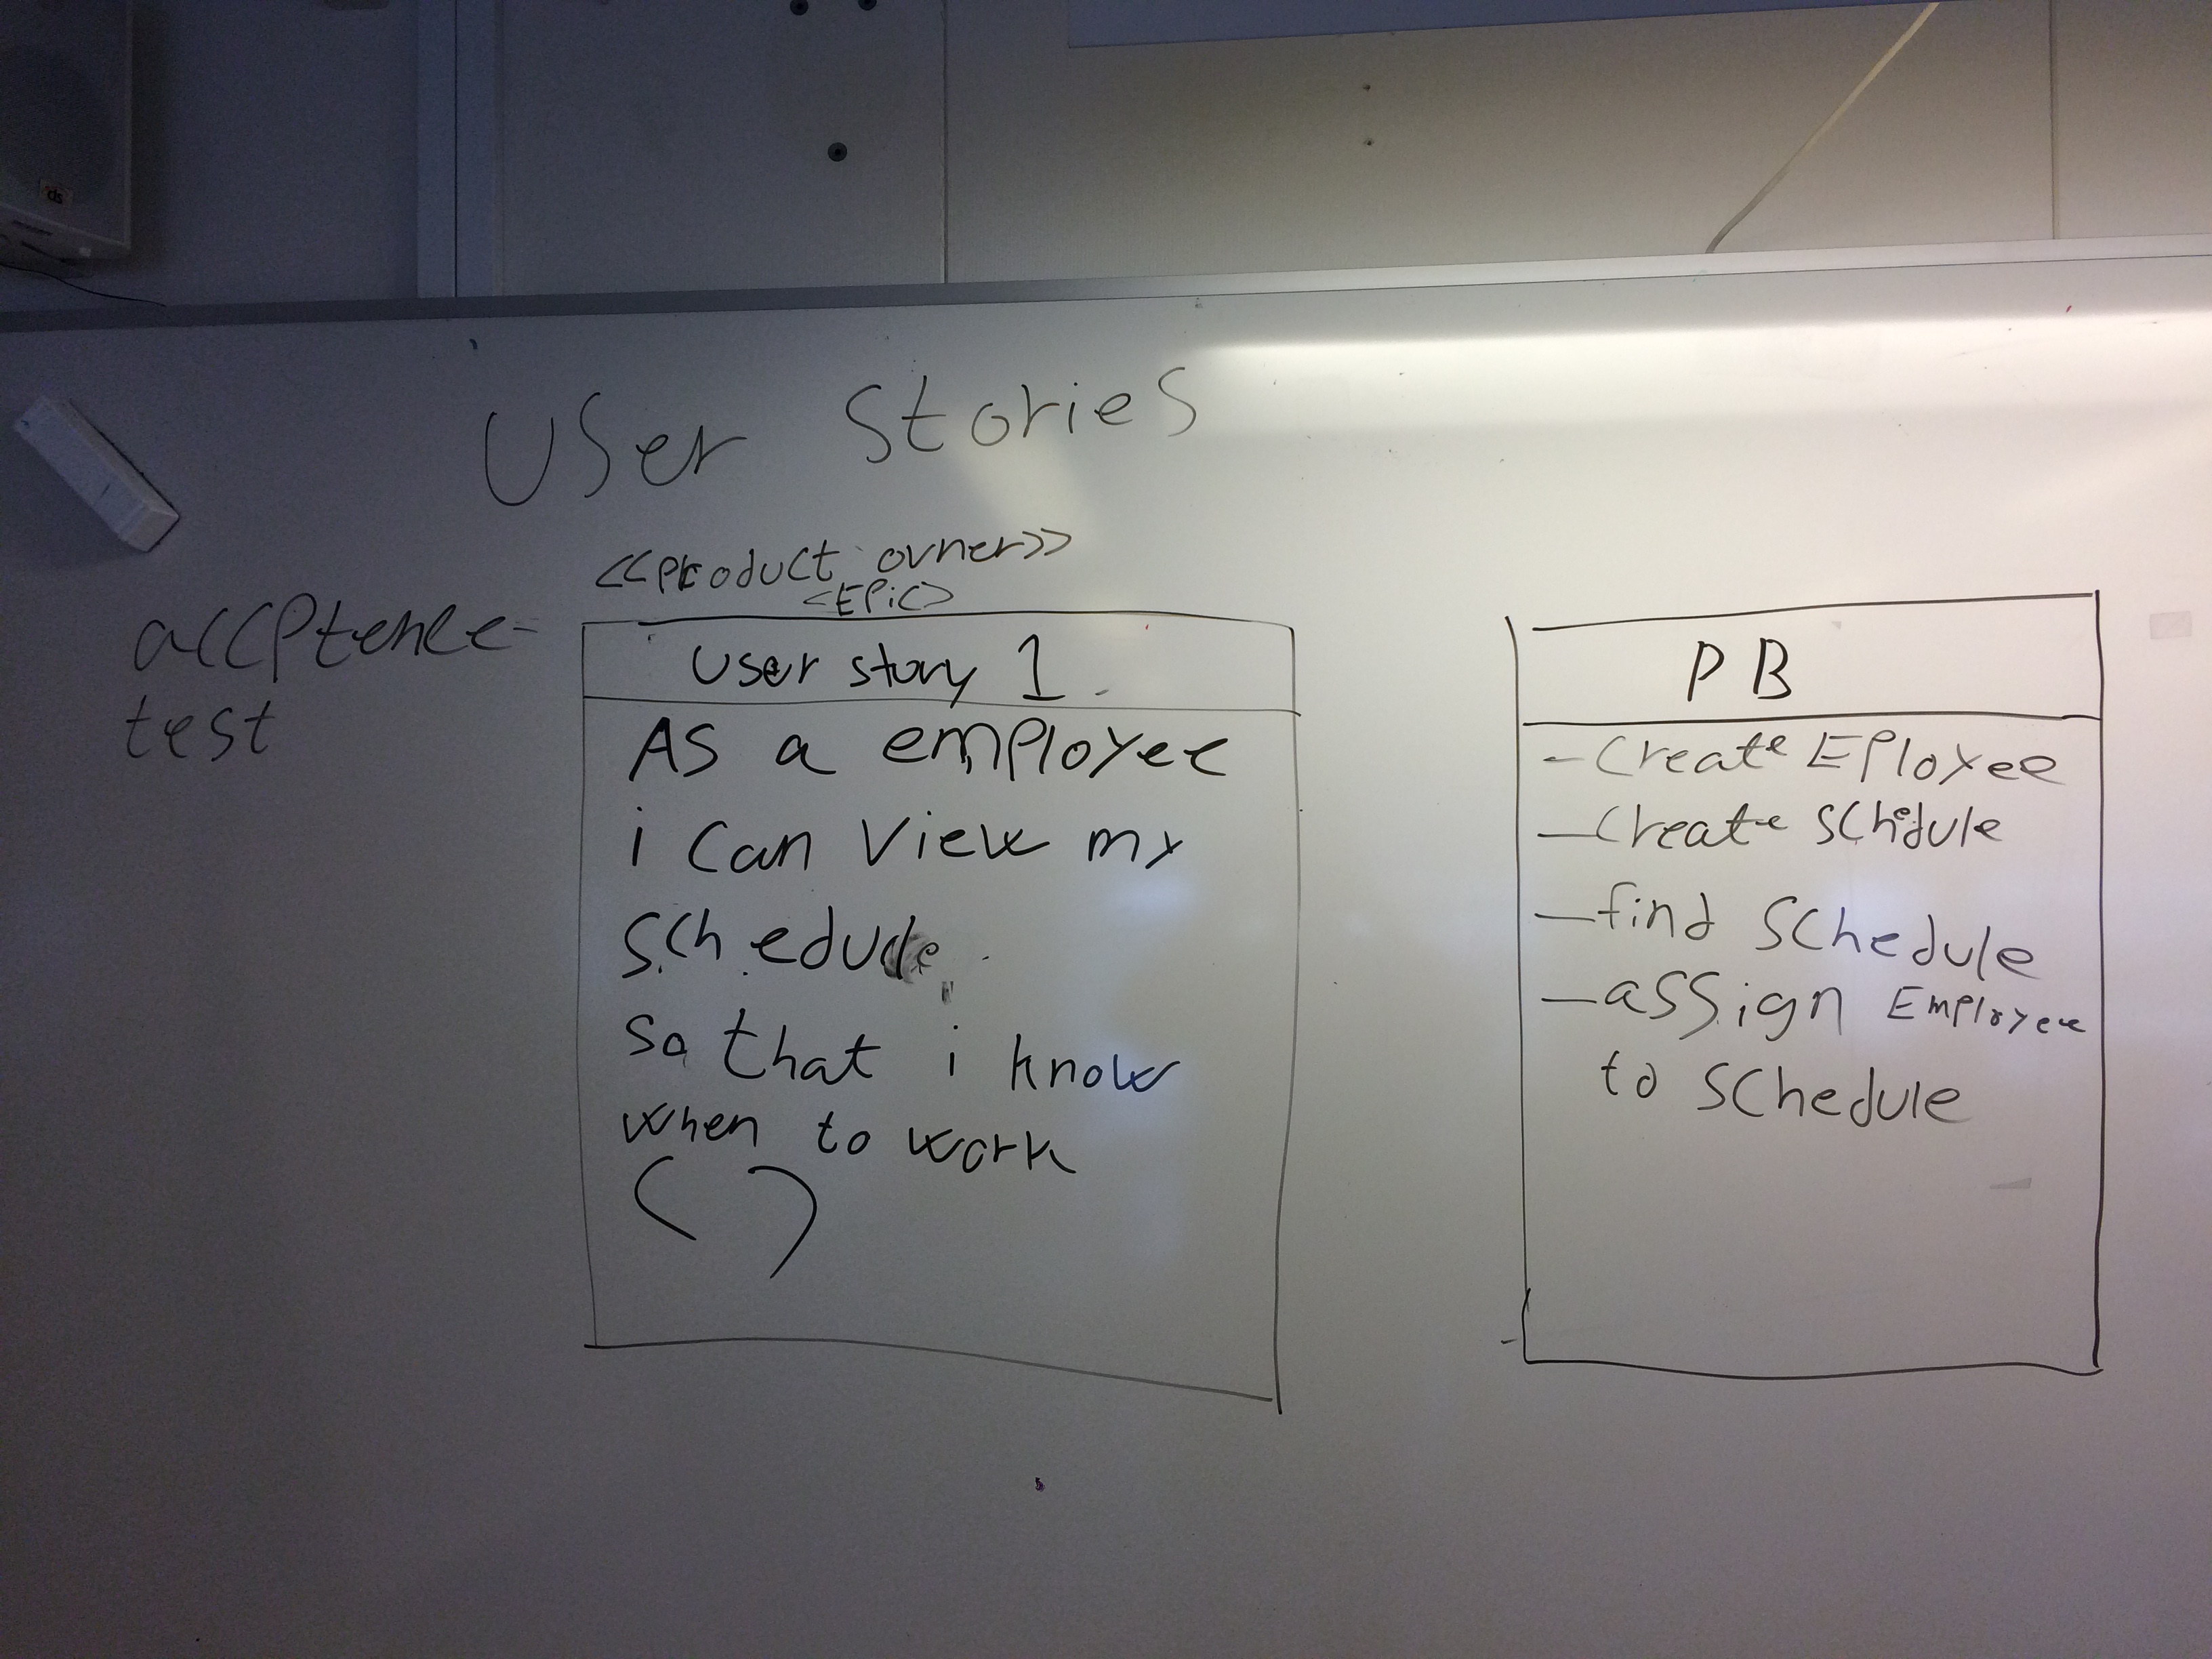 User Stories
<<Product ovner>>
<EPic>
accptence-
test
User story 1
As a employee
i can view my
schedule
so that i know
when to work
( )
PB
- Create Eployee
- Create Schedule
- find Schedule
- assign Employee
to Schedule
ds